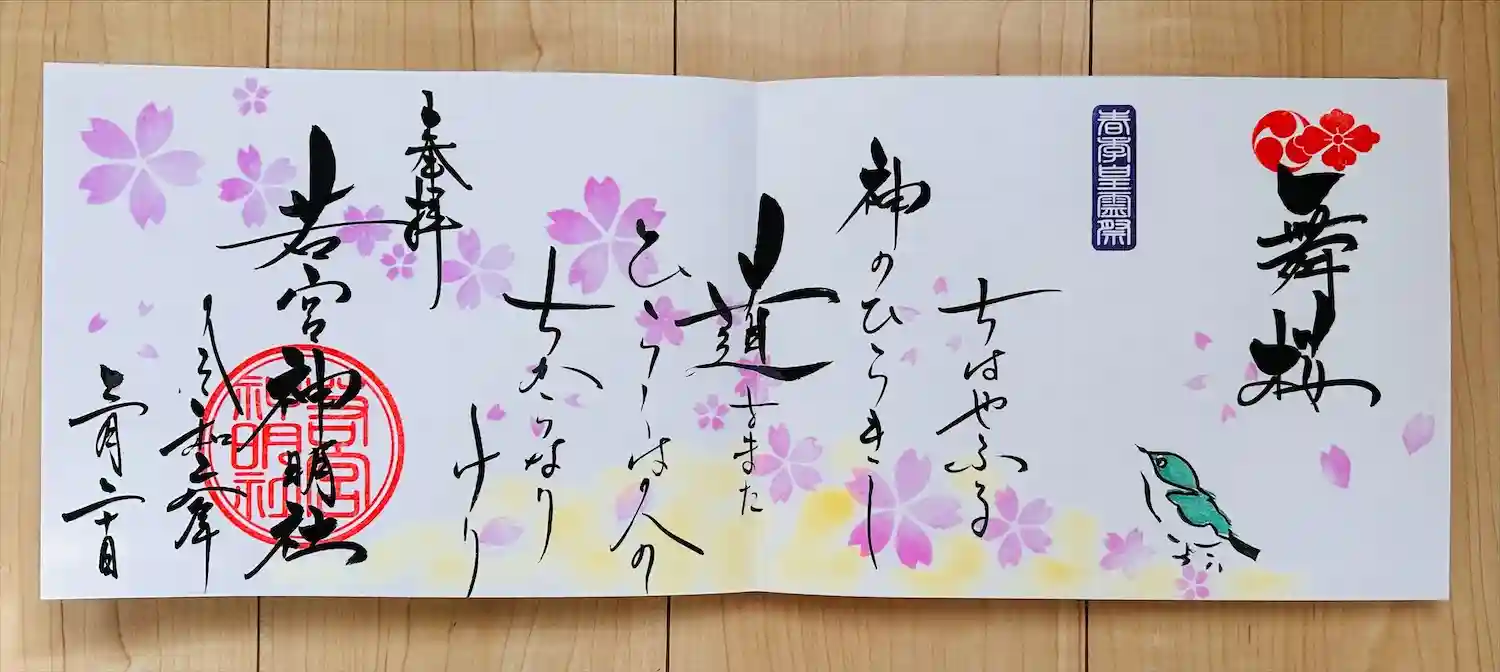 舞桜
春季皇霊祭
ちはやふる
神のひらきし
道をまた
ひらくは人の
ちからなり
けり
奉拝
若宮神明社
若宮
神明社
令和三年
三月二十日